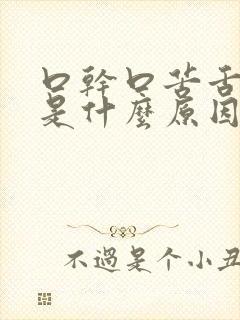 口幹口苦舌
是什麼原因
不過是个小丑